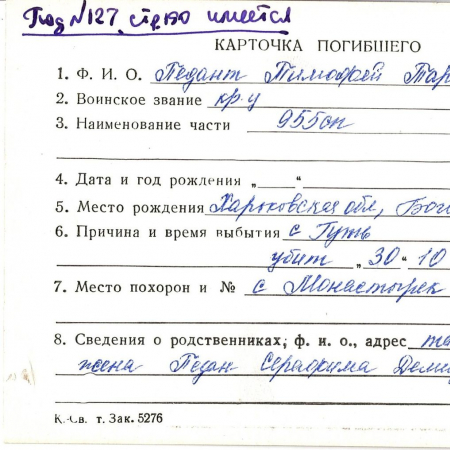 Под №127, стр 50 имеется
КАРТОЧКА ПОГИБШЕГО
1. Ф. И. О. Педант Тимофей Тар
2. Воинское звание кр-ц
3. Наименование части 955сп
4. Дата и год рождения „ “
5. Место рождения Харьковская обл, Бог
6. Причина и время выбытия с Гуть
убит „30“ 10
7. Место похорон и № с Монастырек
8. Сведения о родственниках, ф. и. о., адрес
жена Педан Серафима Деми
К.-Св. т. Зак. 5276